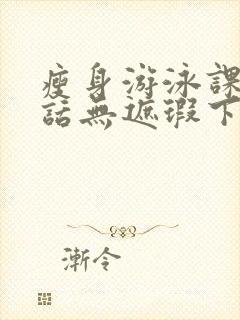 瘦身游泳課
話無遮瑕下
漸令